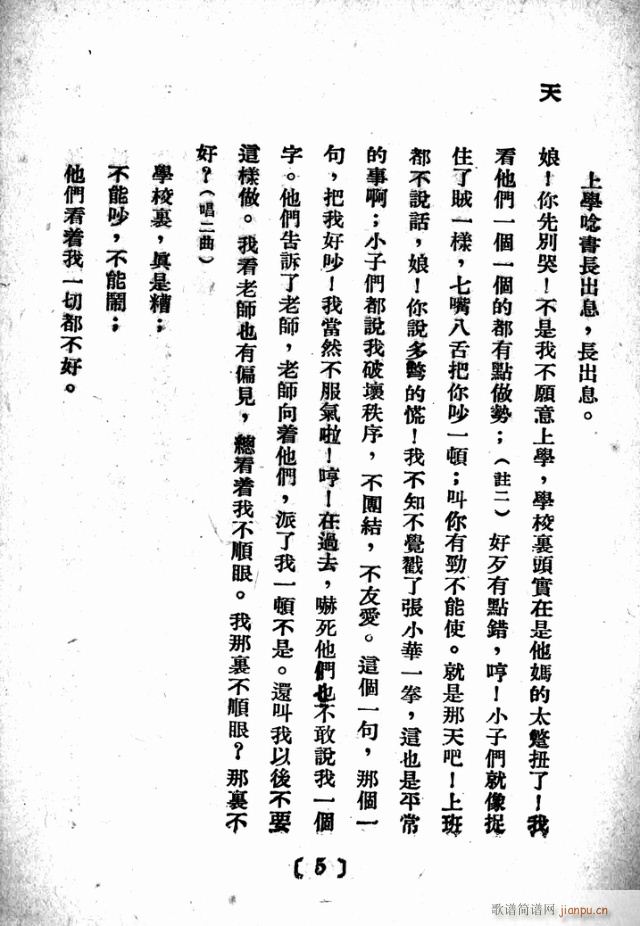 天
上學唸書長出息，長出息。
娘！你先別哭！不是我不願意上學，學校裏頭實在是他媽的太蹩扭了！我
看他們一個一個的都有點做勢；（註二）好歹有點錯，哼！小子們就像捉
住了賊一樣，七嘴八舌把你吵一頓；叫你有勁不能使。就是那天吧！上班
都不說話，娘！你說多彆的慌！我不知不覺戳了張小華一拳，這也是平常
的事啊；小子們都說我破壞秩序，不團結，不友愛。這個一句，那個一
句，把我好吵！我當然不服氣啦！哼！在過去，嚇死他們也不敢說我一個
字。他們告訴了老師，老師向着他們，派了我一頓不是。還叫我以後不要
這樣做。我看老師也有偏見，總看着我不順眼。我那裏不順眼？那裏不
好？（唱二曲）
學校裏，眞是糟；
不能吵，不能鬧；
他們看着我一切都不好。
〔5〕
歌谱简谱网
jianpu.cn